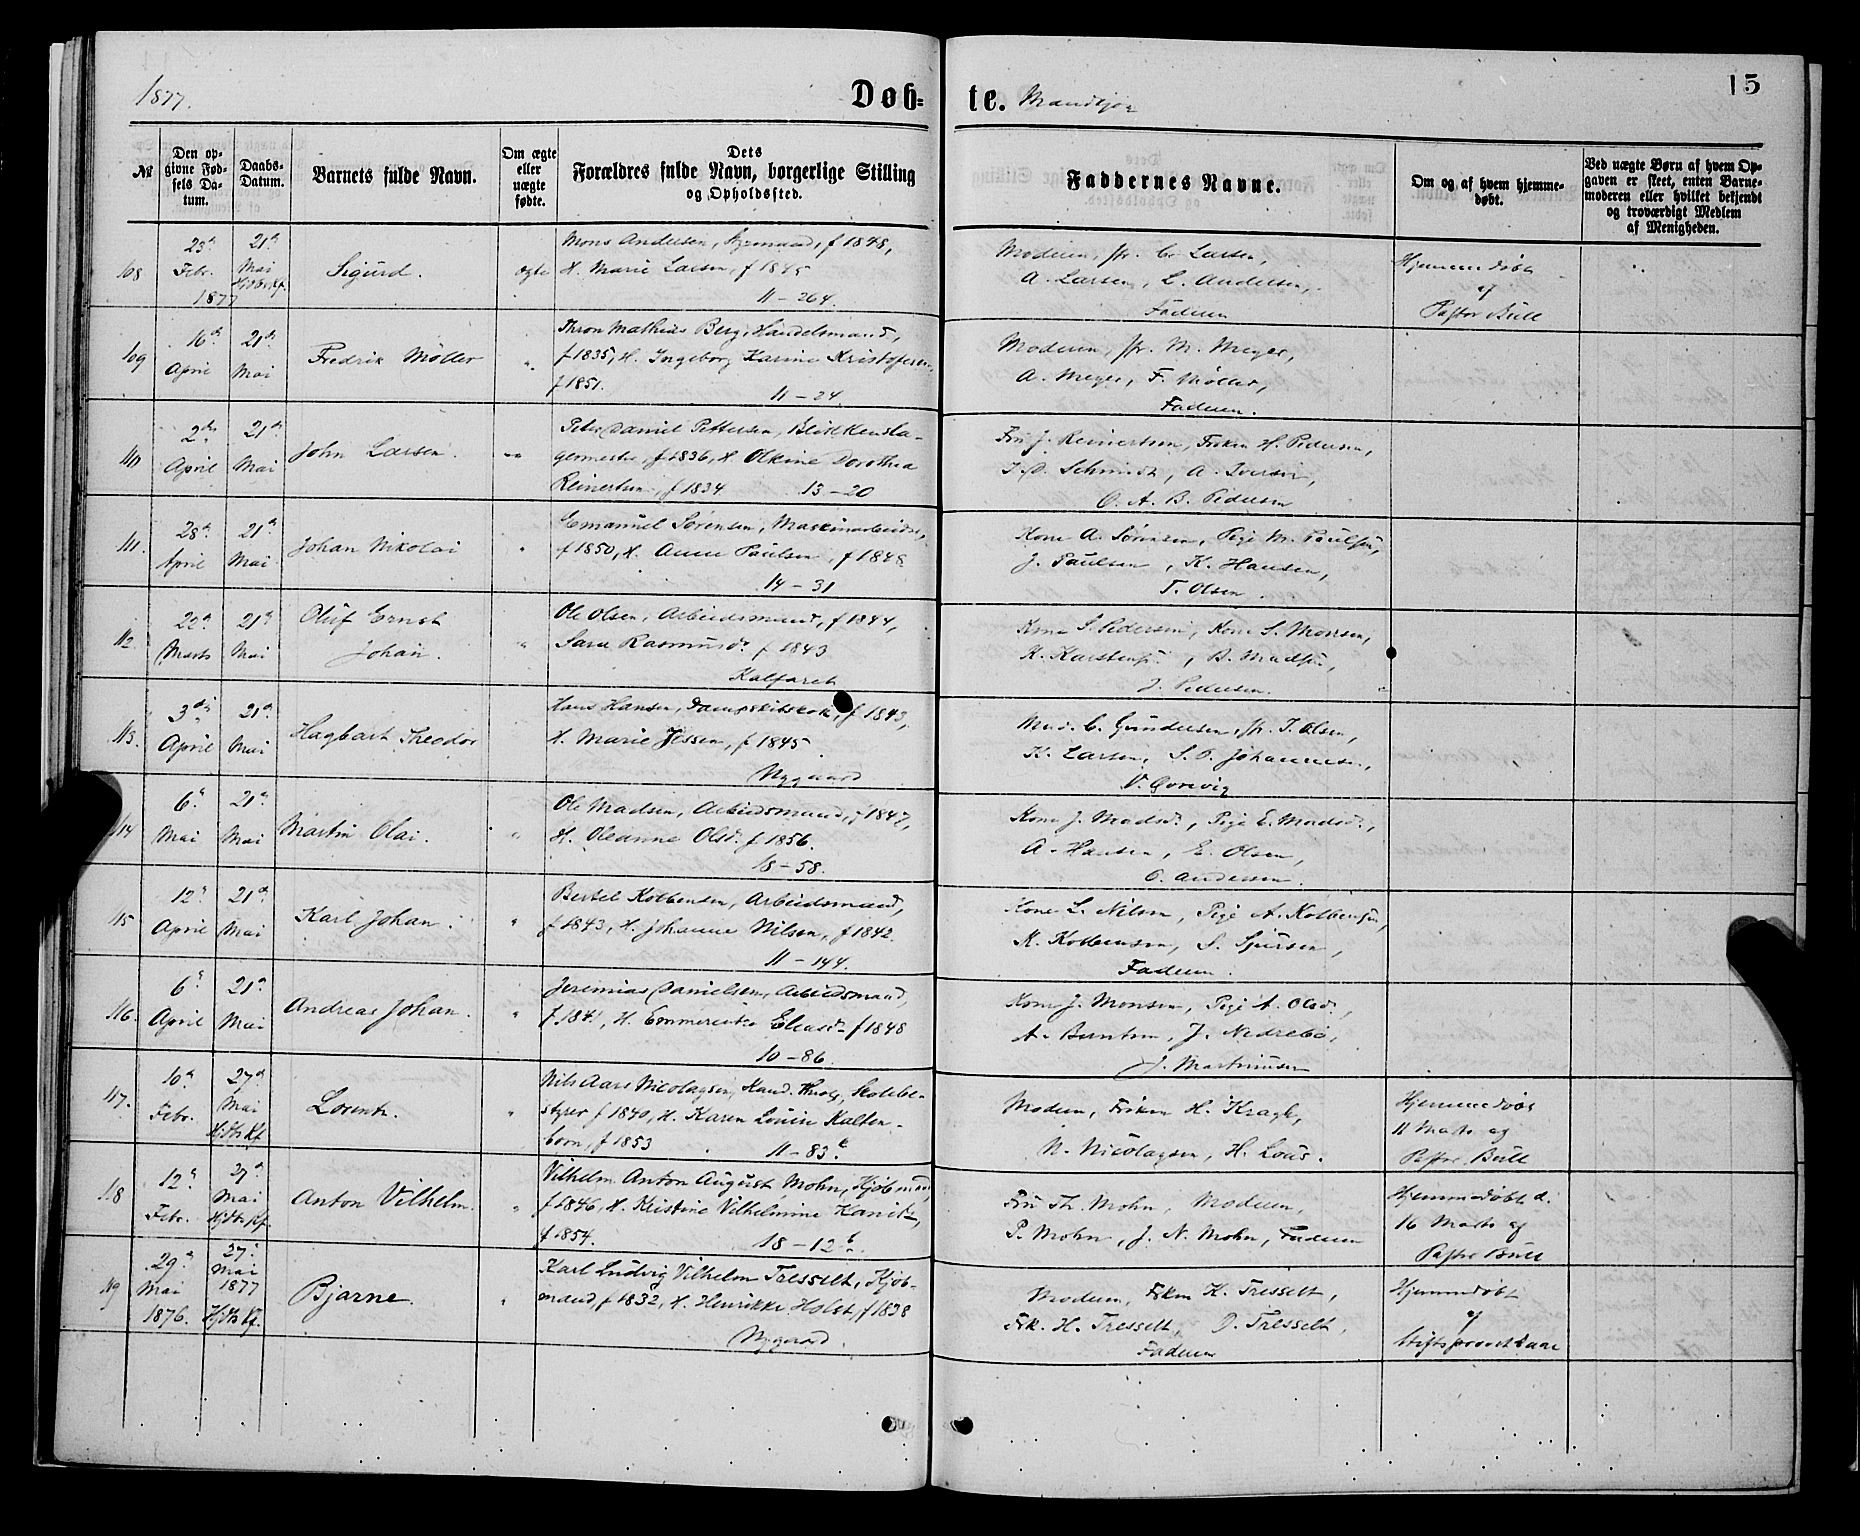 1877.
Døb=
te. Mandkjøn
15
№
Den op-
givne Fød-
sels Da-
tum.
Daabs-
Datum.
Barnets fulde Navn.
Om ægte
eller
uægte
fødte.
Dets
Forældres fulde Navn, borgerlige Stilling
og Opholdssted.
Faddernes Navne.
Om og af hvem hjemme-
døbt.
Ved uægte Børn af hvem Op-
gaven er skeet, enten Barne-
moderen eller hvilket bekjendt
og troværdigt Medlem
af Menigheden.
108
23d
Febr.
1877
21d
Mai
Hjdbs Kf.
Sigurd.
ægte
Mons Andersen, Styrmand, f 1848,
H. Marie Larsen, f 1845
11-264.
Moderen, Fr. C. Larsen,
A. Larsen, L. Andersen,
Faderen
Hjemmedøbt
af
Pastor Bull
109
16d
April
21d
Mai
Fredrik Møller
"
Thron Mathias Berg, Handelsmand,
f 1835, H. Ingeborg Karine Kristofersen,
f 1851.
11-24.
Moderen, Fr. M. Meyer,
A. Meyer, F. Møller,
Faderen.
110
2den
April
21d
Mai
John Larsen.
"
Peter Daniel Pettersen, Blikkensla-
germester, f 1836, H. Olkine Dorothea
Reinertsen, f 1834
13-20
Fru J. Reinertsen, Frøken H. Pedersen,
Schmidt, A. Iversen,
O. A. B. Pedersen
111.
28d
April
21d
Mai
Johan Nikolai
"
Emanuel Sørensen, Maskinarbeider,
f 1850, H. Anne Paulsen, f 1848
14-31
Kone A. Sørensen, Pige M. Paulsen,
J. Paulsen, K. Hansen,
T. Olsen.
112
22d
Marts
21d
Mai
Oluf Ernst
Johan.
"
Ole Olsen, Arbeidsmand, f 1844,
Sara Rasmusd. f 1843
Kalfaret
Kone S. Pedersen, Kone S. Monsen,
K. Karstensen, B. Madsen,
J. Pedersen.
113.
3die
April
21d
Mai
Hagbart Theodor
Hans Hansen, Dampskibskok, f 1843,
H. Marie Jessen, f 1845
Nygaard
Mad. C. Gundersen, Fr. J. Olsen,
K. Larsen, S. O. Johannesen,
V. Gorvig
114
6d
Mai
21d
Mai
Martin Olai.
"
Ole Madsen, Arbeidsmand, f 1847,
H. Oleanne Olsd. f 1856.
18-58.
Kone J. Madsd., Pige E. Madsd.,
A. Hansen, E. Olsen,
O. Andersen.
115
12d
April
21d
Mai
Karl Johan.
"
Bertel Kolbensen, Arbeidsmand,
f 1843, H. Johanne Nilsen, f 1842.
11-144.
Kone L. Nilsen, Pige A. Kolbensen,
K. Kolbensen, S. Sjursen,
Faderen.
116.
6d
April
21d
Mai
Andreas Johan.
"
Jeremias Danielsen, Arbeidsmand,
f 1841, H. Emmerentse Eliasd. f 1848
10-86.
Kone J. Monsen, Pige A. Olsd.,
A. Berntsen, J. Nedrebø,
J. Martinusen
117.
10d
Febr.
27d
Mai
Hjdbs Kf.
Lorentz.
"
Nils Aars Nicolaysen, Kand. theol., Skolebe-
styrer f 1840, H. Karen Louise Kalten-
born, f 1853
11-83c
Moderen, Frøken H. Kragh,
N. Nicolaysen, H. Lous.
Hjemmedøbt
11 Marts af
Pastor Bull
118
12d
Febr.
27d
Mai
Hjdbs Kf.
Anton Vilhelm.
"
Vilhelm Anton August Mohn, Kjøbmand,
f 1846, H. Kristine Vilhelmine Hanitz,
f 1854.
18-12b
Fru Th. Mohn, Moderen,
P. Mohn, J. N. Mohn, Faderen
Hjemmedøbt d.
16 Marts af
Pastor Bull
119
29d
Mai
1876.
27d
Mai
1877
Hjdbs Kf.
Bjarne.
"
Karl Ludvig Vilhelm Tresselt, Kjøb-
mand, f 1832, H. Henrikke Holst, f 1838
Nygaard.
Moderen, Frøken K. Tresselt,
Frk. H. Tresselt, D. Tresselt,
Faderen
Hjemmedøbt
af
Stiftsprovst Kaar